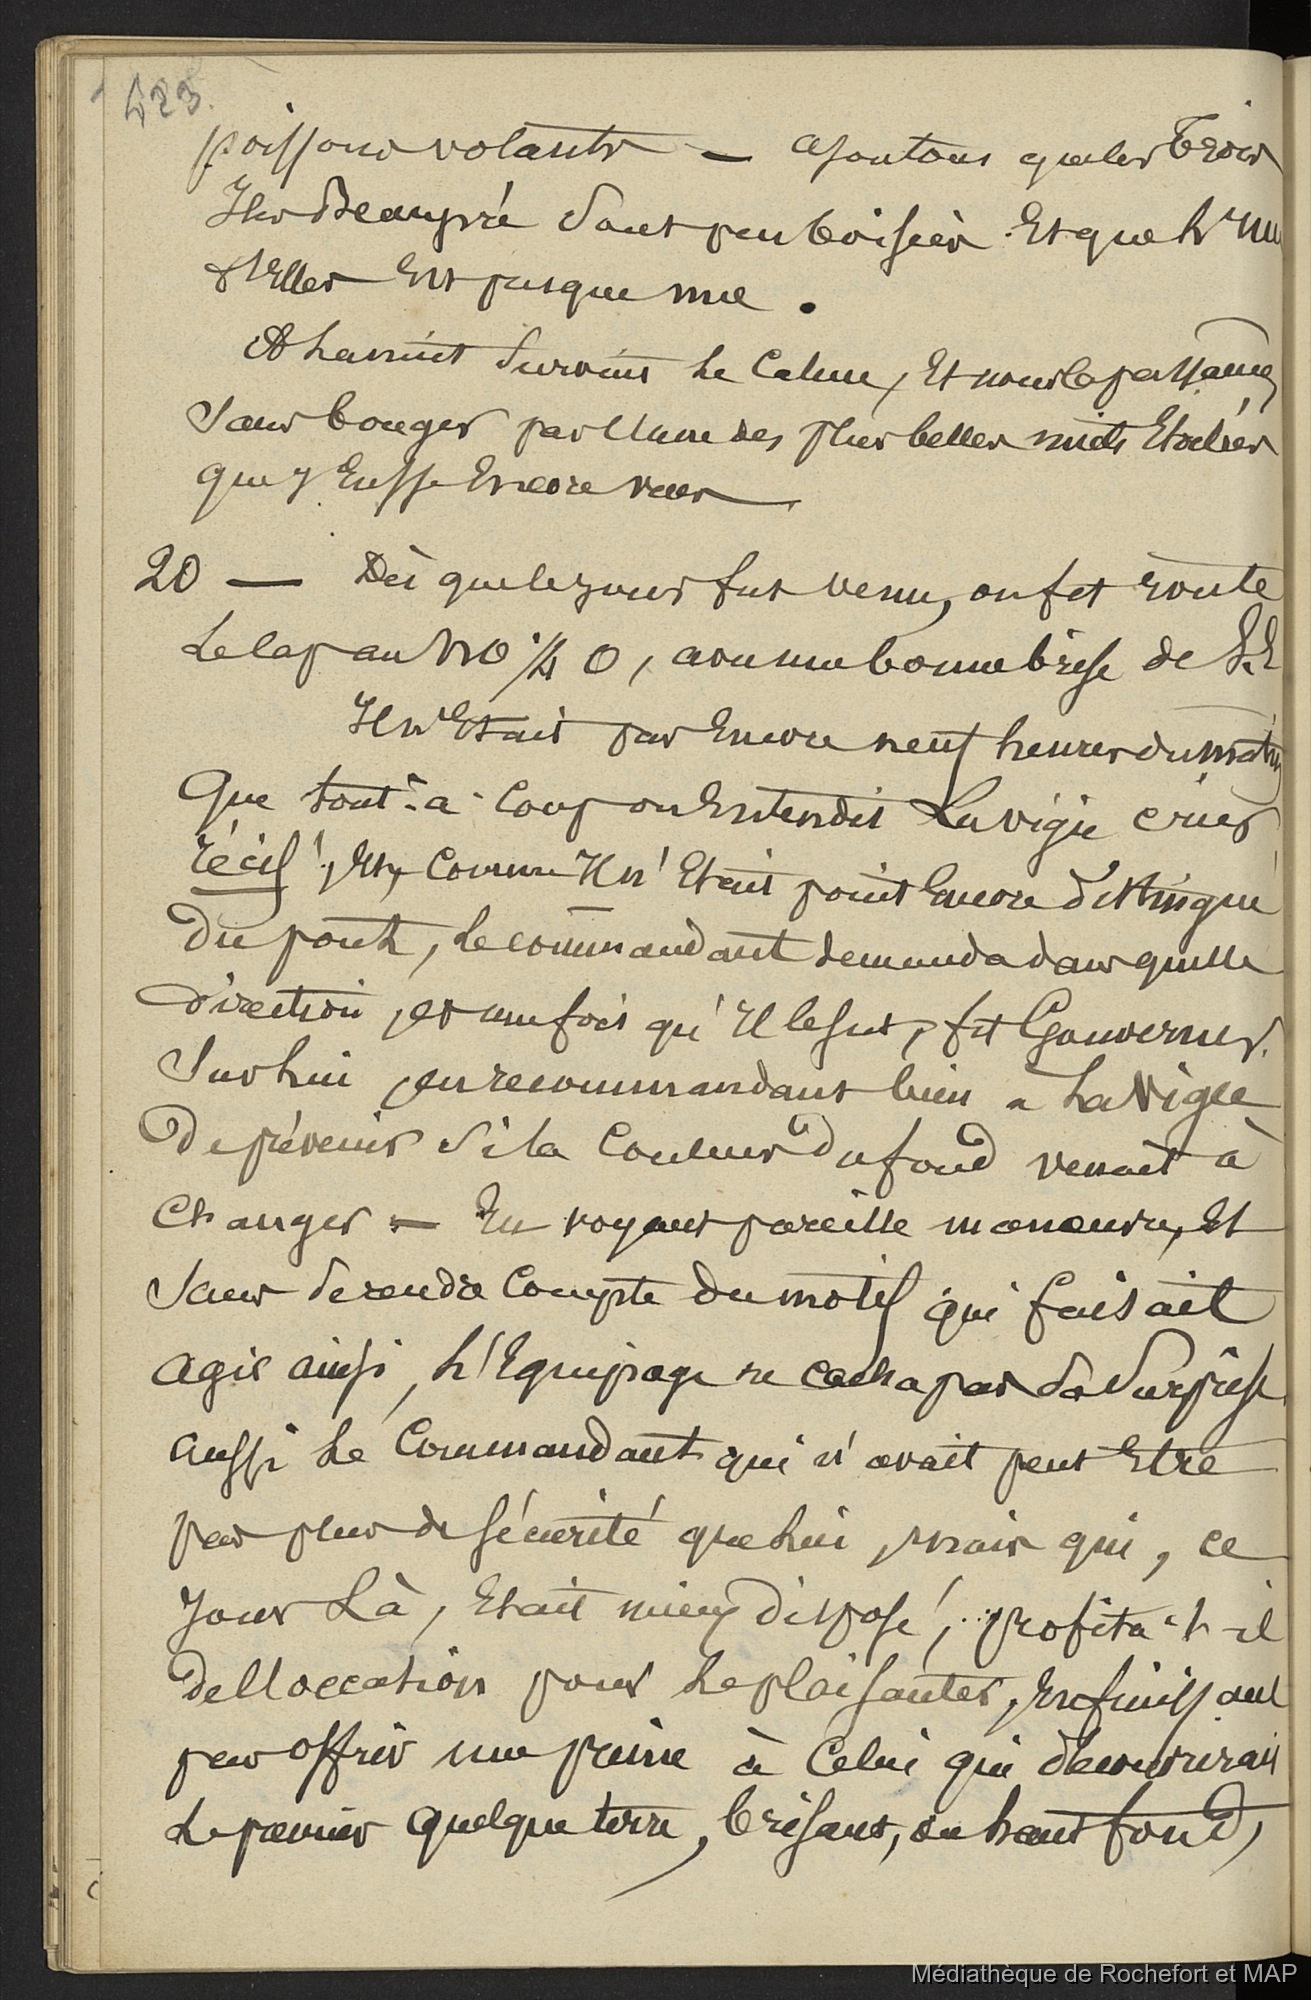 423.
poissons volants — ajoutons que les trois
Iles Beaupré sont peu boisées Et que l'une
d'Elles Est presque nue .
A la nuit survint le Calme, Et nous la passâmes
sans bouger par l'une des plus belles nuits Etoilées
que j'Eusse Encore vues —
20 — Dès que le jour fut venu, on fit route
le cap au NO 1/4 O, avec une bonne brise de S.E
Il n'Etait pas Encore neuf heures du matin
Que tout-à-coup on Entendit la vigie crier
récif !, Et, comme Il n'Etait point Encore distingué
Du pont, le commandant demanda dans quelle
direction, et une fois qu'Il le sut, fit Gouverner
sur lui, en recommandant bien a la Vigie
De prévenir si la couleur du fond venait à
changer — En voyant pareille manœuvre, Et
sans se rendre compte du motif qui faisait
agir ainsi, l'Equipage ne cacha pas sa surprise
aussi le Commandant qui n'avait peut Etre
pas plus de sécurité que lui, mais qui, ce
jour là, Etait mieux disposé, profita-t-il
De l'occasion pour le plaisanter, En finissant
par offrir une prime à Celui qui découvrirait
le premier quelque terre, brisans, ou haut fond,
Médiathèque de Rochefort et MAP